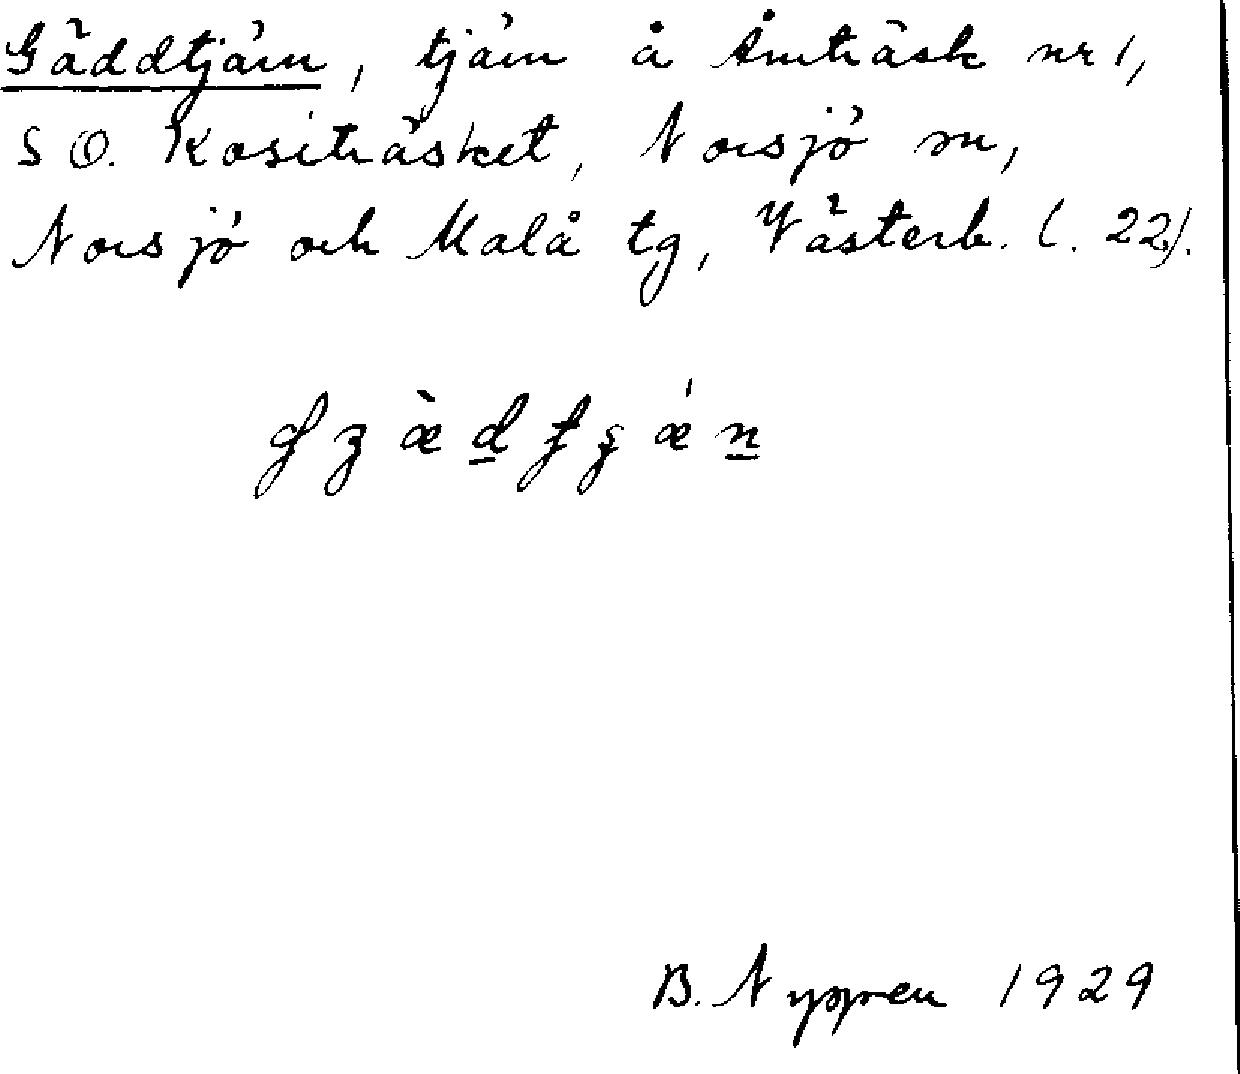 Gäddtjärn, tjärn å Åmträsk nr 1,
SO. Kositräsket, Norsjö sn,
Norsjö och Malå tg, Västerb. l. 22).
B. Nyggren 1929